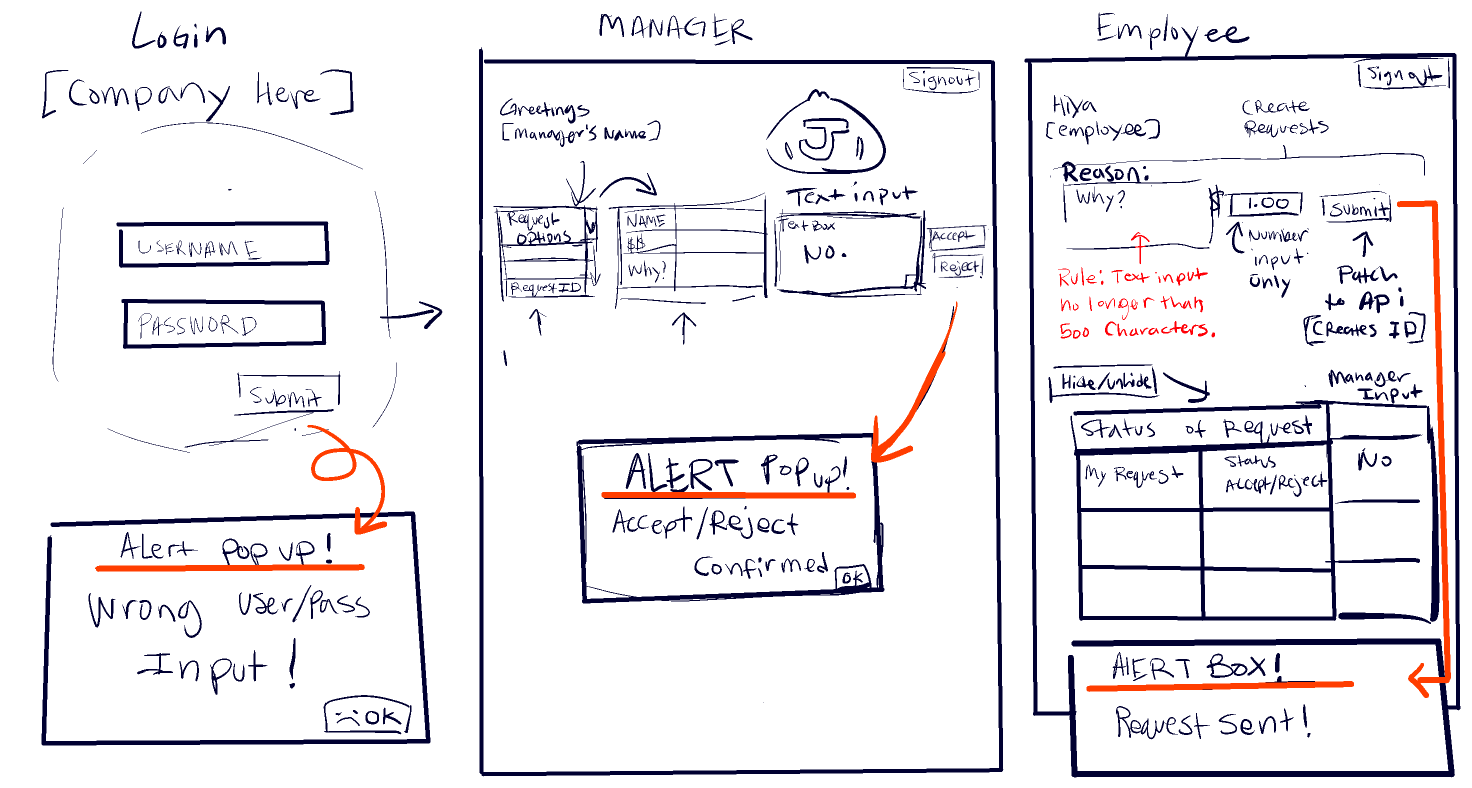 Login
[Company Here]
USERNAME
PASSWORD
Submit
Alert Pop up!
Wrong user/pass
Input!
:( OK
MANAGER
Signout
Greetings
[Manager's Name]
J
Request
Options
Request ID
NAME
$$
Why?
Text input
Text Box
No.
Accept
Reject
ALERT Pop up!
Accept/Reject
Confirmed
OK
Employee
Signout
Hiya
[employee]
Create
Requests
Reason:
Why?
$
1.00
Submit
Rule: Text input
no longer than
500 Characters.
Number
input
only
Patch
to APi
[Creates ID]
Hide/unhide
Manager
Input
Status of Request
My Request
Status
Accept/Reject
No
AlERT BOX!
Request Sent!